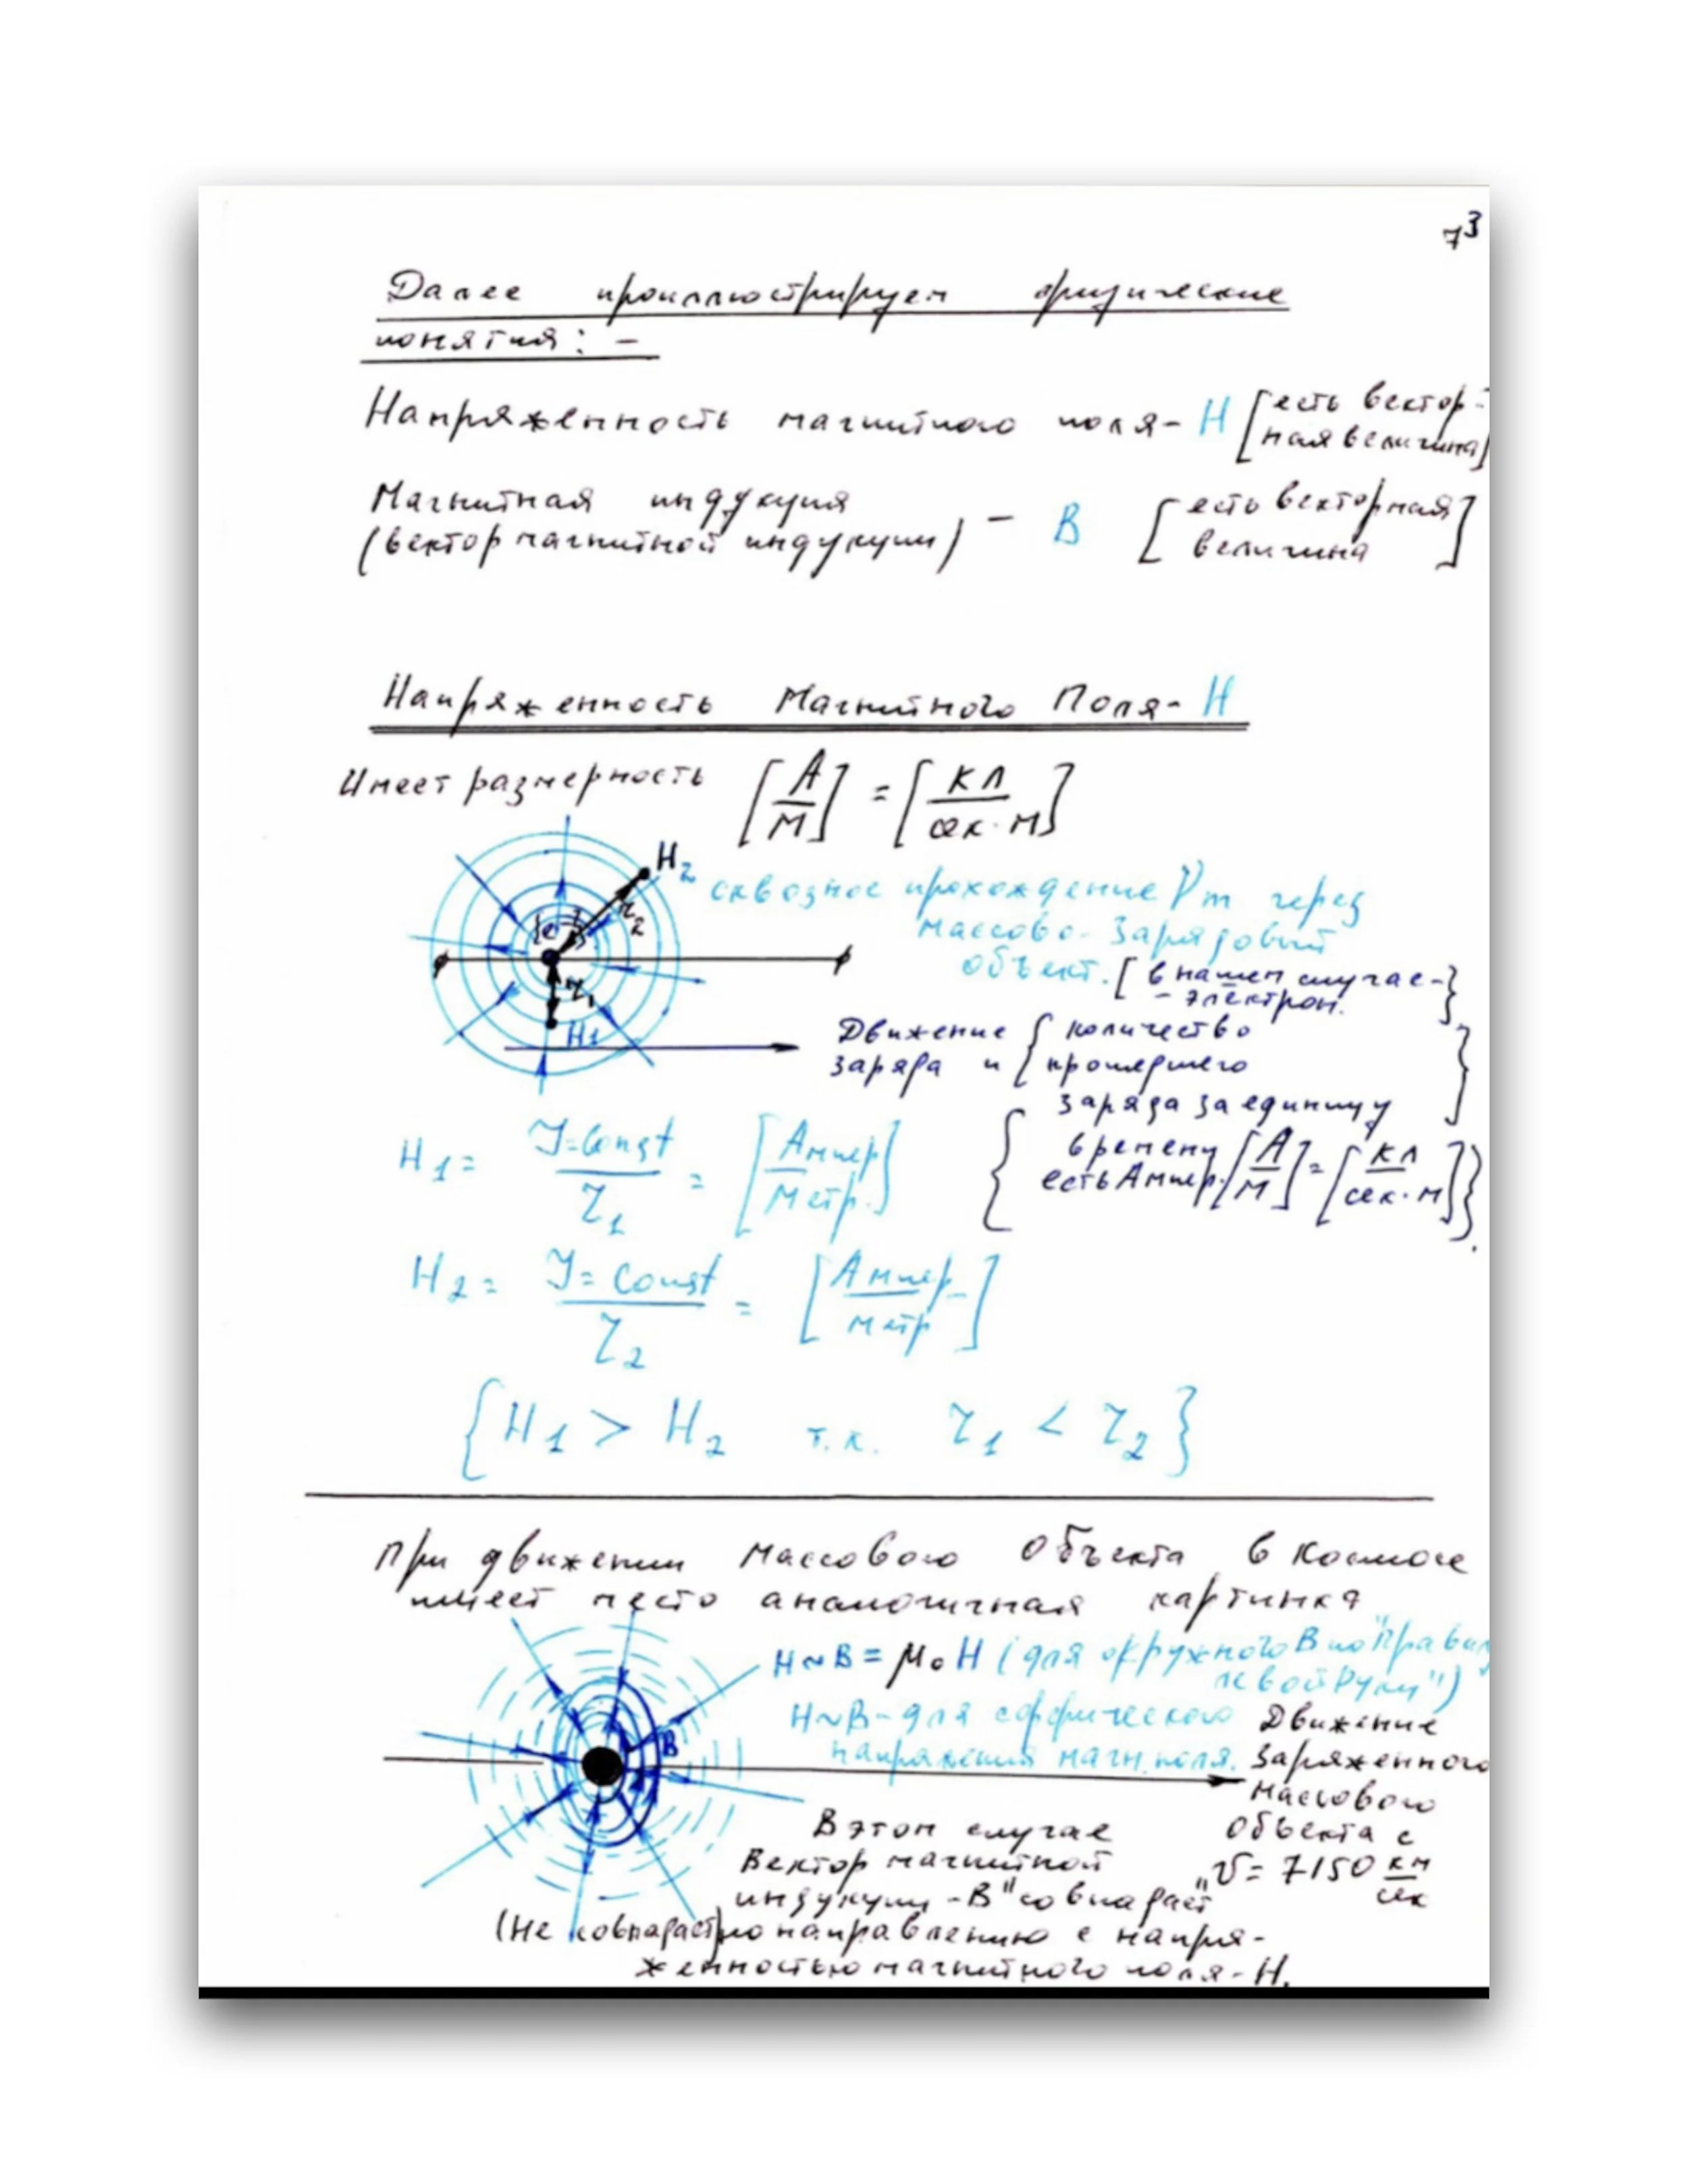 7³
Далее проиллюстрируем физические
понятия: -
Напряженность магнитного поля - H [есть вектор-
ная величина]
Магнитная индукция
(вектор магнитной индукции) - B [есть векторная
величина]
Напряженность Магнитного Поля - H
Имеет размерность [А/М] = [Кл/сек·м]
H₂
сквозное прохождение через
массово-зарядовый
объект. [в нашем случае -
- электрон.]
r₂
r₁
H₁
Движение {количество
заряда и {прошедшего
заряда за единицу
времени
есть Ампер. [А/М] = [Кл/сек·м]}.
H₁ = J=Const/r₁ = [Ампер/Метр.]
H₂ = J=Const/r₂ = [Ампер/метр]
{H₁ > H₂ т.к. r₁ < r₂}
При движении массового объекта в космосе
имеет место аналогичная картинка
H~B = μ₀H (для окружного B по "Правилу
левой Руки")
H~B - для сферического
напряжения магн. поля.
B
Движение
заряженного
массового
объекта с
V = 7150 км/сек
В этом случае
Вектор магнитной
индукции - B "совпадает"
(Не совпадает) по направлению с напря-
женностью магнитного поля - H.